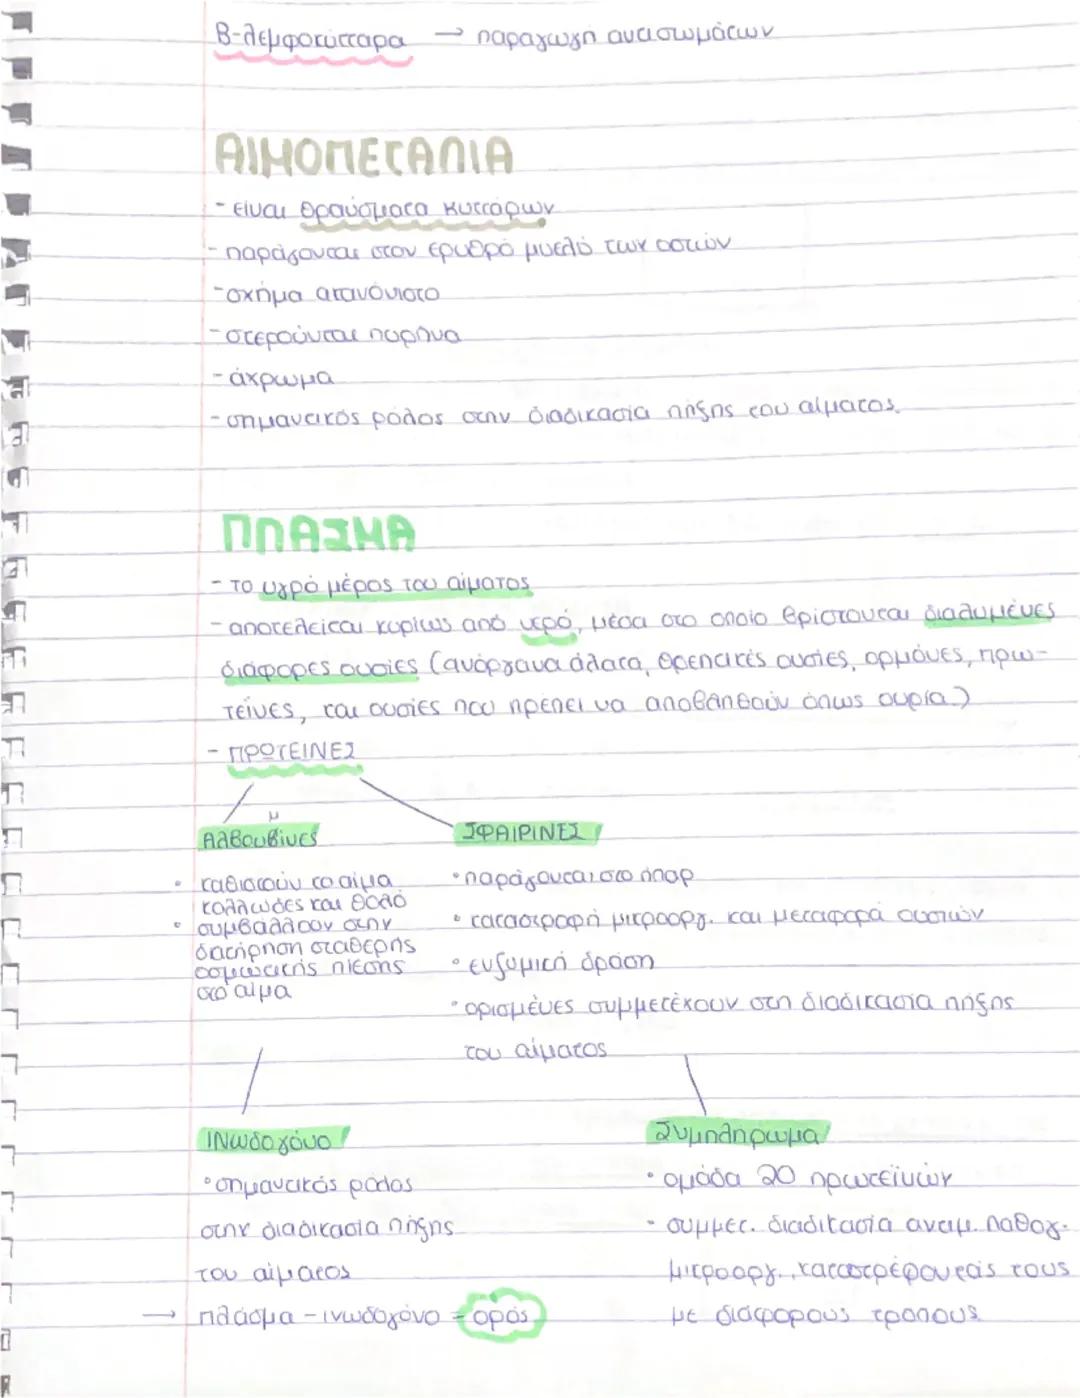 Β-λεμφοκύτταρα → παραγωγή αντισωμάτων
ΑΙΜΟΠΕΤΑΛΙΑ
- είναι θραύσματα κυττάρων
- παράγονται στον ερυθρό μυελό των οστών
- σχήμα ακανόνιστο
- στερούνται πυρήνα
- άχρωμα
- σημαντικός ρόλος στην διαδικασία πήξης του αίματος.
ΠΛΑΣΜΑ
- το υγρό μέρος του αίματος
- αποτελείται κυρίως από νερό, μέσα στο οποίο βρίστουται διαλυμένες
διάφορες ουσίες (ανόργανα άλατα, θρεπτικές ουσίες, ορμόνες, πρω-
τείνες, και ουσίες που πρέπει να αποβληθούν όπως ουρία.)
- ΠΡΩΤΕΙΝΕΣ
μ
Αλβουβίνες ΣΦΑΙΡΙΝΕΣ
• καθιστούν το αίμα
κολλώδες και θολό
• συμβάλλουν στην
διατήρηση σταθερής
οσμωτικής πίεσης
στο αίμα
• παράγονται στο ήπαρ
• καταστροφή μικροοργ. και μεταφορά ουσιών
• ενζυμική δράση
• ορισμένες συμμετέχουν στη διαδικασία πήξης
του αίματος
Ινωδογόνο
• σημαντικός ρόλος
στην διαδικασία πήξης
του αίματος
→ πλάσμα - ινωδογόνο = ορός
Συμπλήρωμα
• ομάδα 20 πρωτεϊνών
- συμμετ. διαδικασία αντιμ. παθογ.
μικροοργ., καταστρέφοντάς τους
με διάφορους τρόπους